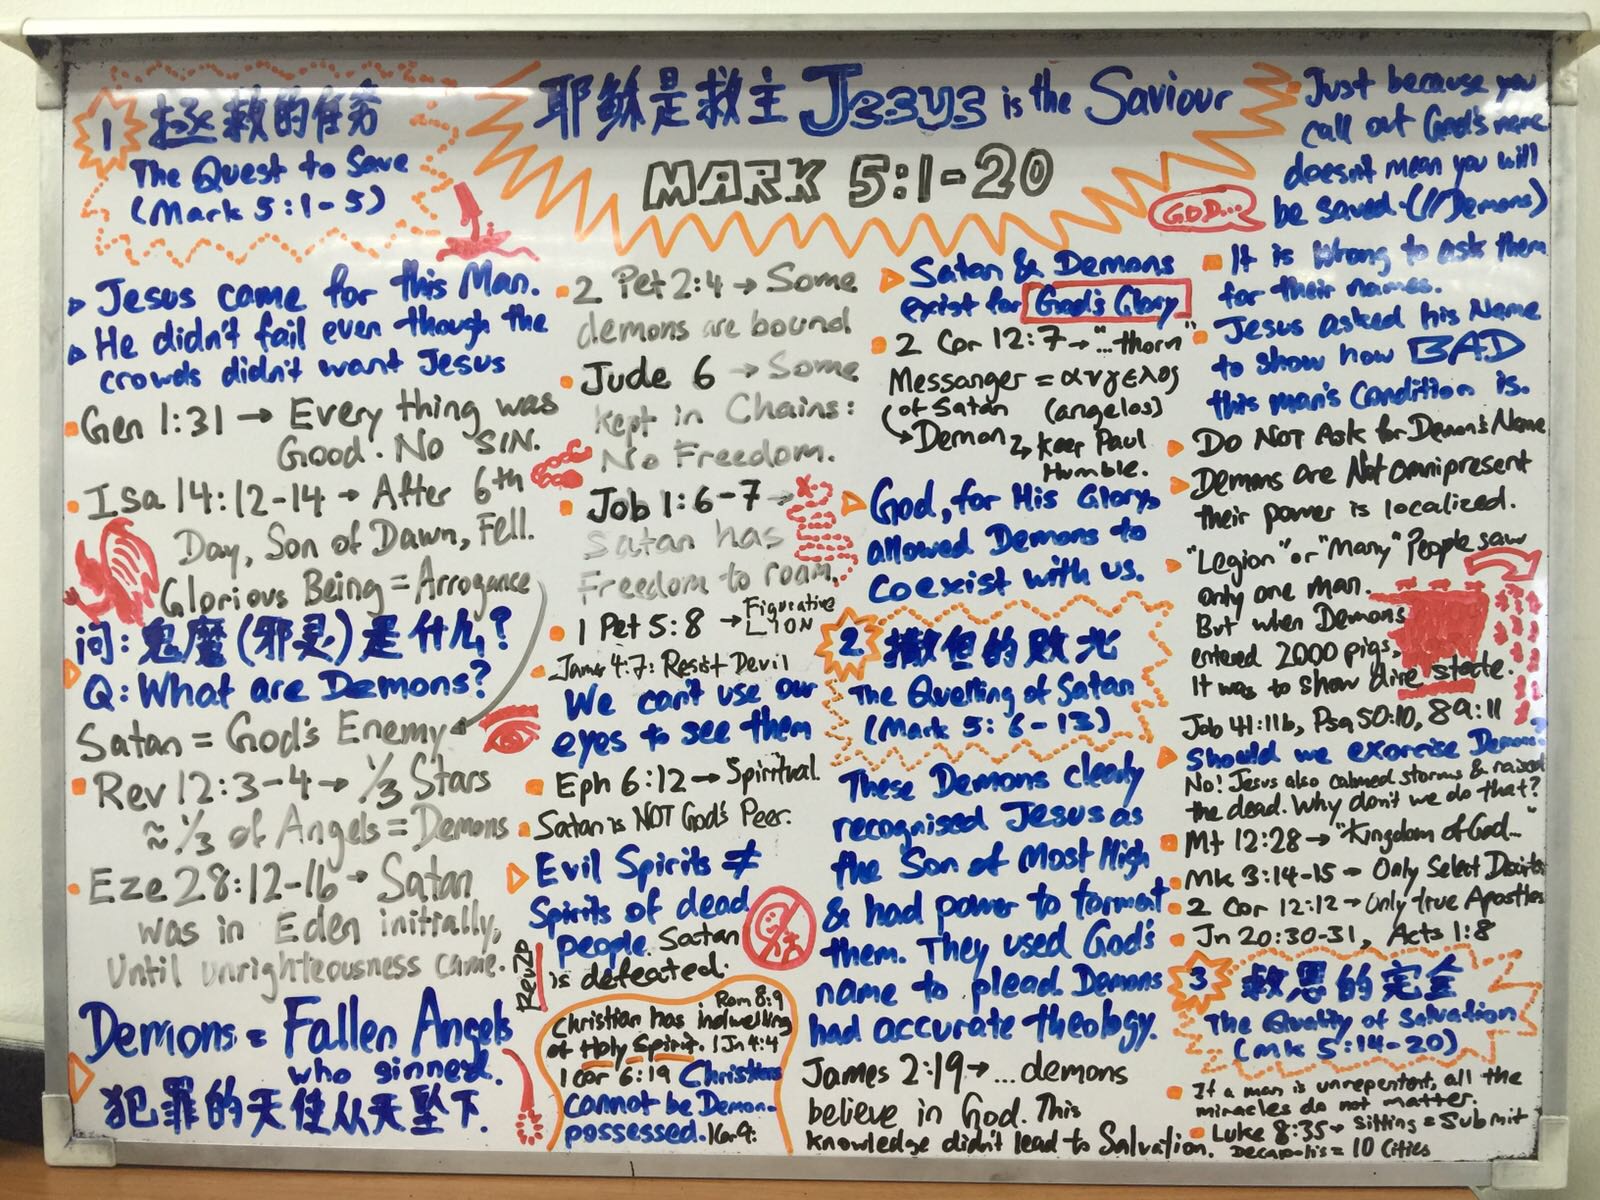 耶稣是救主 Jesus is the Saviour
MARK 5:1-20
1 拯救的任务
The Quest to Save
(Mark 5:1-5)
Jesus came for this Man.
He didn't fail even though the
crowds didn't want Jesus
Gen 1:31 → Every thing was
Good. No SIN.
Isa 14:12-14 → After 6th
Day, Son of Dawn, Fell.
Glorious Being = Arrogance
问: 鬼魔(邪灵)是什么?
Q: What are Demons?
Satan = God's Enemy
Rev 12:3-4 → 1/3 Stars
≈ 1/3 of Angels = Demons
Eze 28:12-16 → Satan
was in Eden initially,
Until unrighteousness came.
Demons = Fallen Angels
who sinned.
犯罪的天使从天坠下.
2 Pet 2:4 → Some
demons are bound
Jude 6 → Some
kept in Chains:
No Freedom.
Job 1:6-7 →
Satan has
Freedom to roam.
1 Pet 5:8 → Figurative
LION
James 4:7: Resist Devil
We can't use our
eyes to see them
Eph 6:12 → Spiritual.
Satan is NOT God's Peer.
Evil Spirits ≠
Spirits of dead
people. Satan
is defeated.
Rev 20
Rom 8:9
Christian has indwelling
of Holy Spirit. 1 Jn 4:4
1 Cor 6:19 Christians
cannot be Demon-
possessed.
Satan & Demons
exist for God's Glory
2 Cor 12:7 → "...thorn"
Messanger = αγγελος
of Satan (angelos)
Demon → Keep Paul
Humble.
God, for His Glory,
allowed Demons to
coexist with us.
2 撒但的败光
The Quelling of Satan
(Mark 5:6-13)
These Demons clearly
recognised Jesus as
the Son of Most High
& had power to torment
them. They used God's
name to plead. Demons
had accurate theology.
James 2:19 → ... demons
believe in God. This
knowledge didn't lead to Salvation.
Just because you
call out God's name
doesn't mean you will
be saved. (//Demons)
GOD...
It is Wrong to ask them
for their names.
Jesus asked his Name
to show how BAD
this man's Condition is.
Do NOT Ask for Demon's Name
Demons are Not omnipresent
their power is localized.
"Legion" or "Many" People saw
only one man.
But when Demons
entered 2000 pigs,
It was to show dire state.
Job 41:11b, Psa 50:10, 89:11
Should we exorcise Demons?
No! Jesus also calmed storms & raised
the dead. Why don't we do that?
Mt 12:28 → "Kingdom of God..."
Mk 3:14-15 → Only Select
2 Cor 12:12 → Only true Apostles
Jn 20:30-31, Acts 1:8
3 救恩的完全
The Quality of Salvation
(Mk 5:14-20)
If a man is unrepentant, all the
miracles do not matter.
Luke 8:35 → Sitting = Submit
Decapolis = 10 Cities